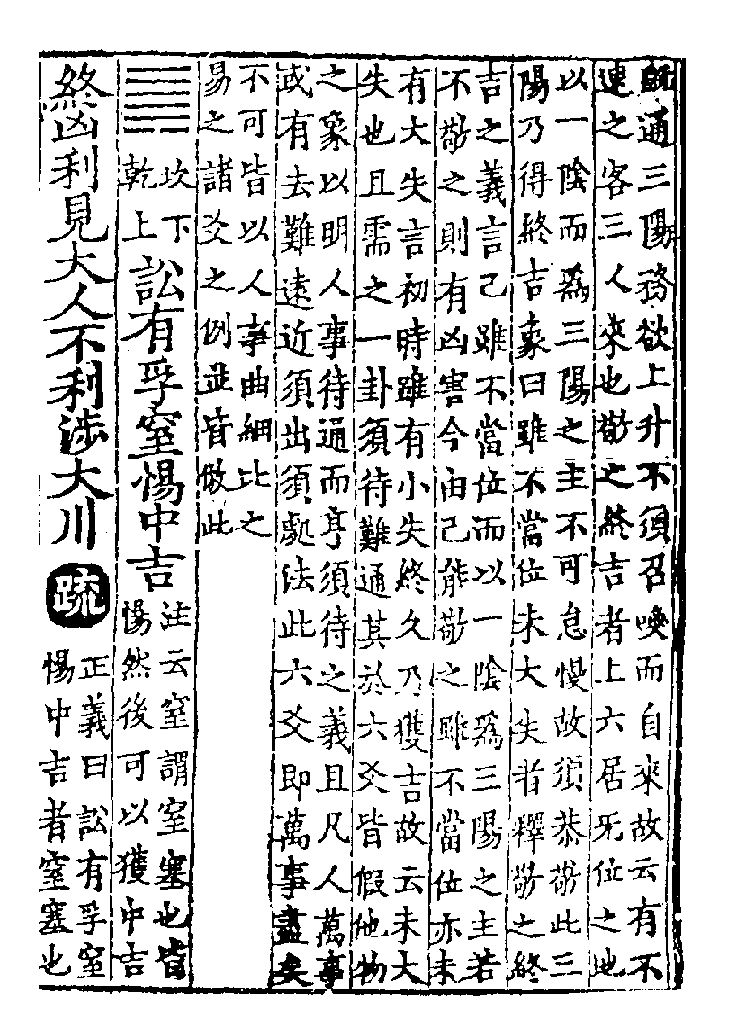 既通三陽務欲上升不須召喚而自來故云有不
速之客三人來也敬之終吉者上六居无位之地
以一陰而爲三陽之主不可怠慢故須恭敬此三
陽乃得終吉象曰雖不當位未大失者釋敬之終
吉之義言己雖不當位而以一陰爲三陽之主若
不敬之則有凶害今由己能敬之雖不當位亦未
有大失言初時雖有小失終久乃獲吉故云未大
失也且需之一卦須待難通其於六爻皆假他物
之象以明人事待通而亨須待之義且凡人萬事
或有去難遠近須出須處法此六爻即萬事盡矣
不可皆以人事曲細比之
易之諸爻之例並皆倣此
䷅坎下乾上訟有孚窒惕中吉注云窒謂窒塞也皆惕然後可以獲中吉
終凶利見大人不利涉大川疏正義曰訟有孚窒惕中吉者窒塞也